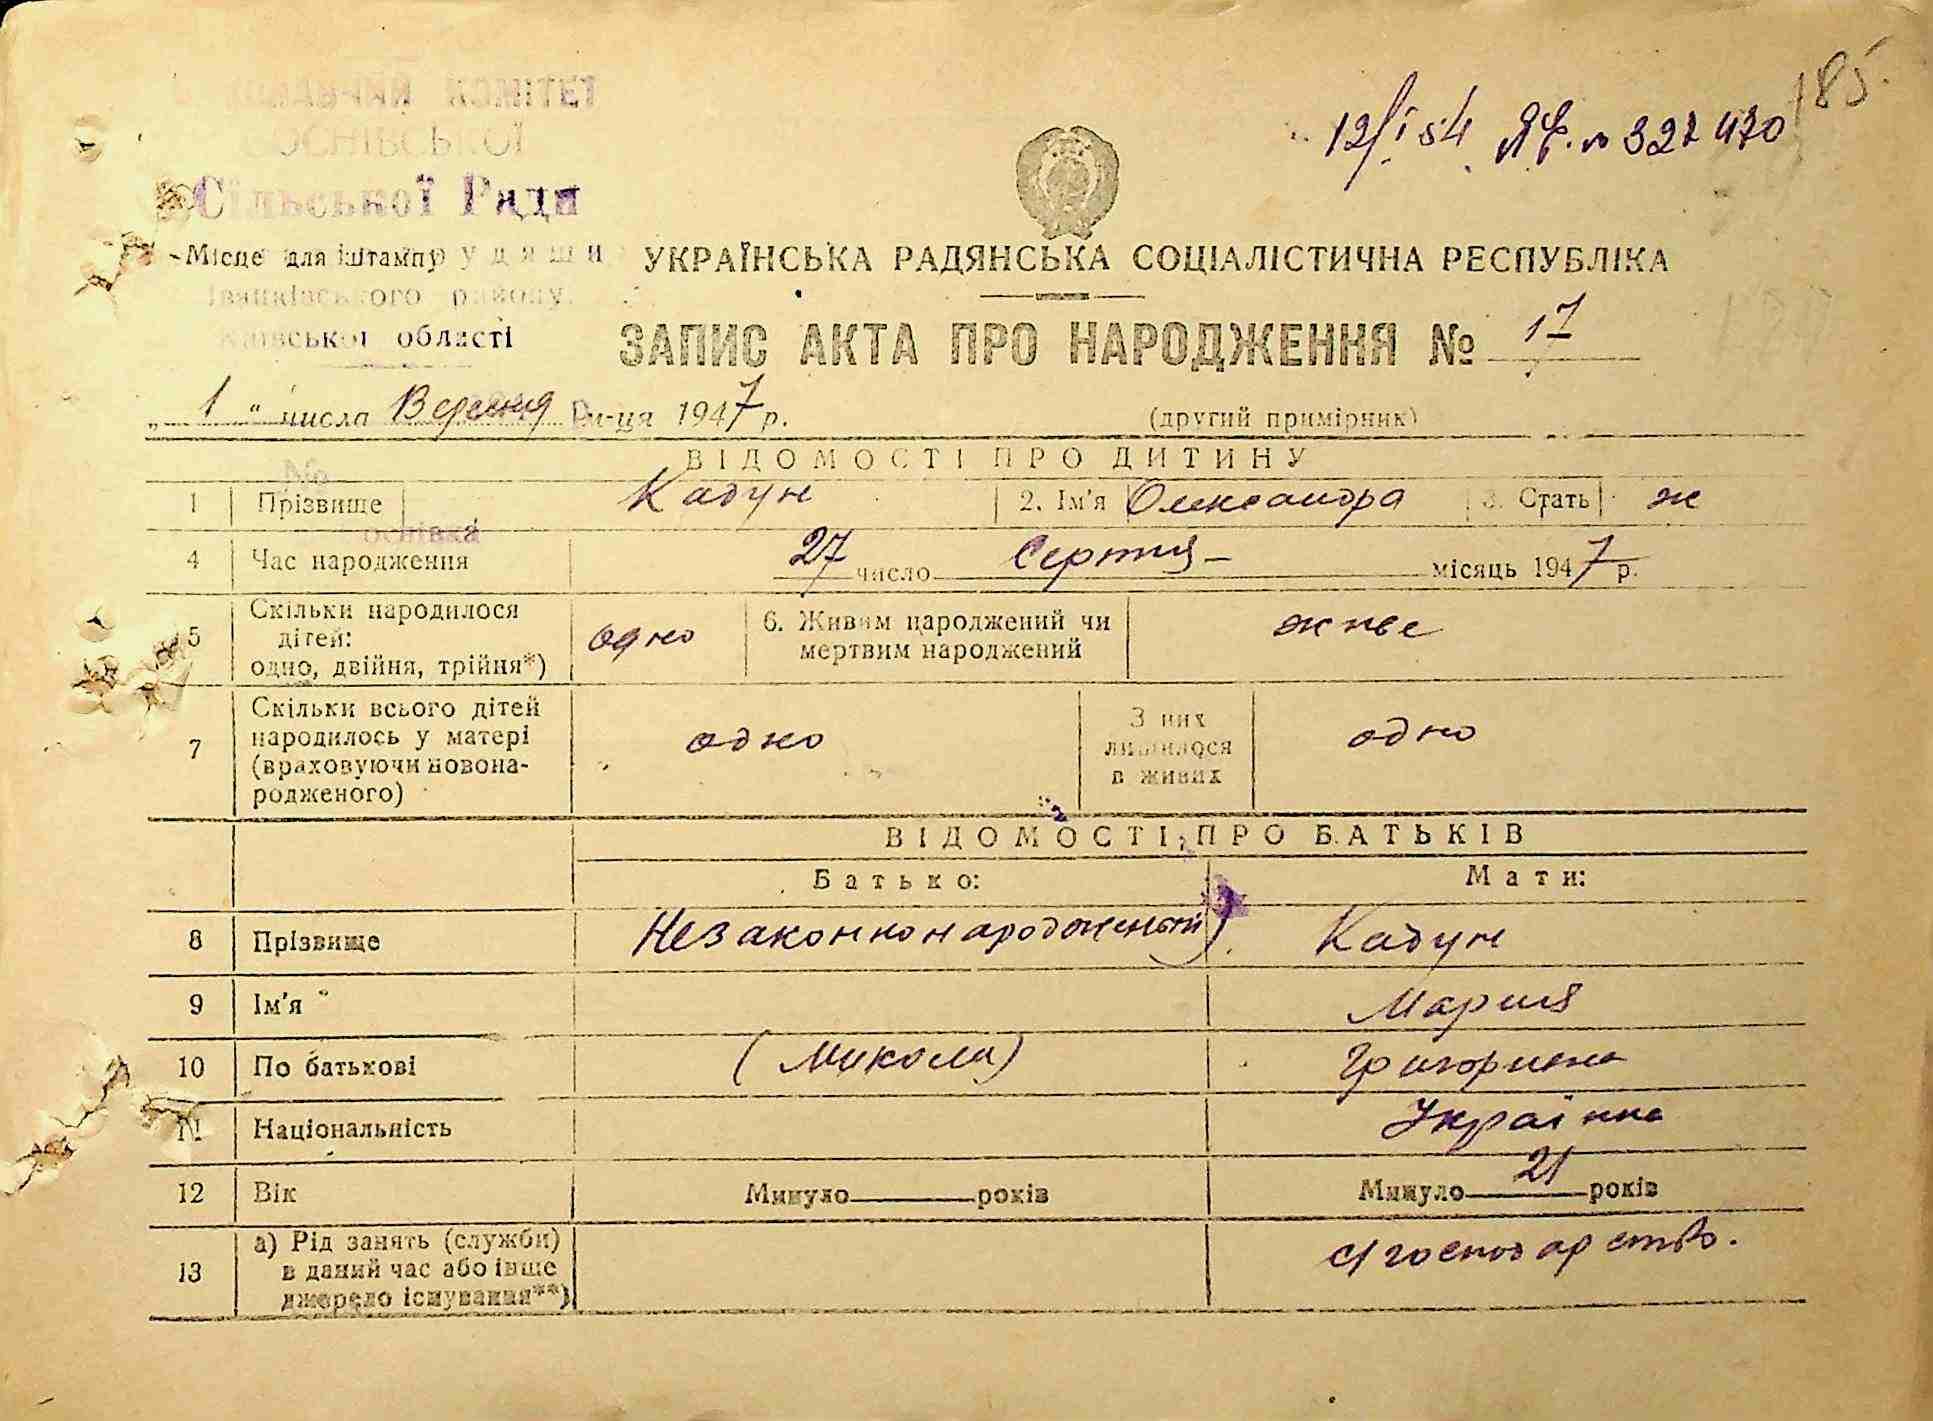 185.
12/I 54 ЯФ. № 327470
Виконавчий комітет
Соснівської
Сільської Ради
Місце для штампу
Іванківського району,
Київської області
УКРАЇНСЬКА РАДЯНСЬКА СОЦІАЛІСТИЧНА РЕСПУБЛІКА
ЗАПИС АКТА ПРО НАРОДЖЕННЯ № 17
„ 1 “ числа Вересня м-ця 1947 р.
(другий примірник)
ВІДОМОСТІ ПРО ДИТИНУ
№
1 Прізвище Кадун 2. Ім'я Олександра 3. Стать ж
оснівка
4 Час народження 27 число Серпня місяць 1947 р.
5 Скільки народилося дітей: одно, двійня, трійня*) одно 6. Живим народжений чи мертвим народжений живе
7 Скільки всього дітей народилось у матері (враховуючи новонародженого) одно З них лишилося в живих одно
ВІДОМОСТІ ПРО БАТЬКІВ
Батько: Мати:
8 Прізвище Незаконнонародженый) Кадун
9 Ім'я Мария
10 По батькові (Микола) Григориена
11 Національність Українка
12 Вік Минуло років Минуло 21 років
13 а) Рід занять (служби) в даний час або інше джерело існування**) с/господарство.